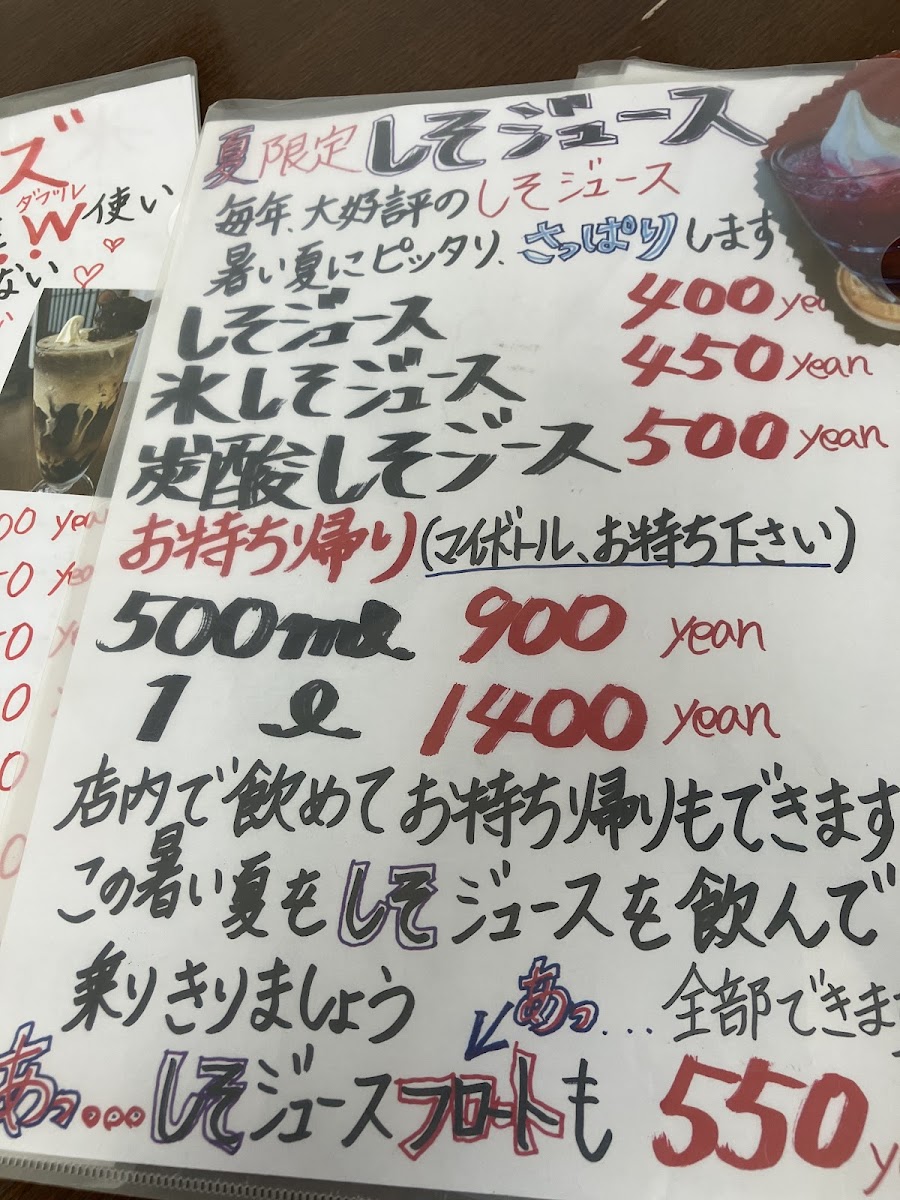 ズ
ダブル
W使い
ない
00 yea
50 ye
50 y
0
0
0
夏限定しそジュース
毎年、大好評のしそジュース
暑い夏にピッタリ、さっぱりします
しそジュース 400 yea
氷しそジュース 450 yean
炭酸しそジース 500 yean
お持ち帰り(マイボトル、お持ち下さい)
500ml 900 yean
1 l 1400 yean
店内で飲めてお持ち帰りもできます
この暑い夏をしそジュースを飲んで
乗りきりましょう
あっ... 全部できます
あっ...しそジュースフロートも 550 y